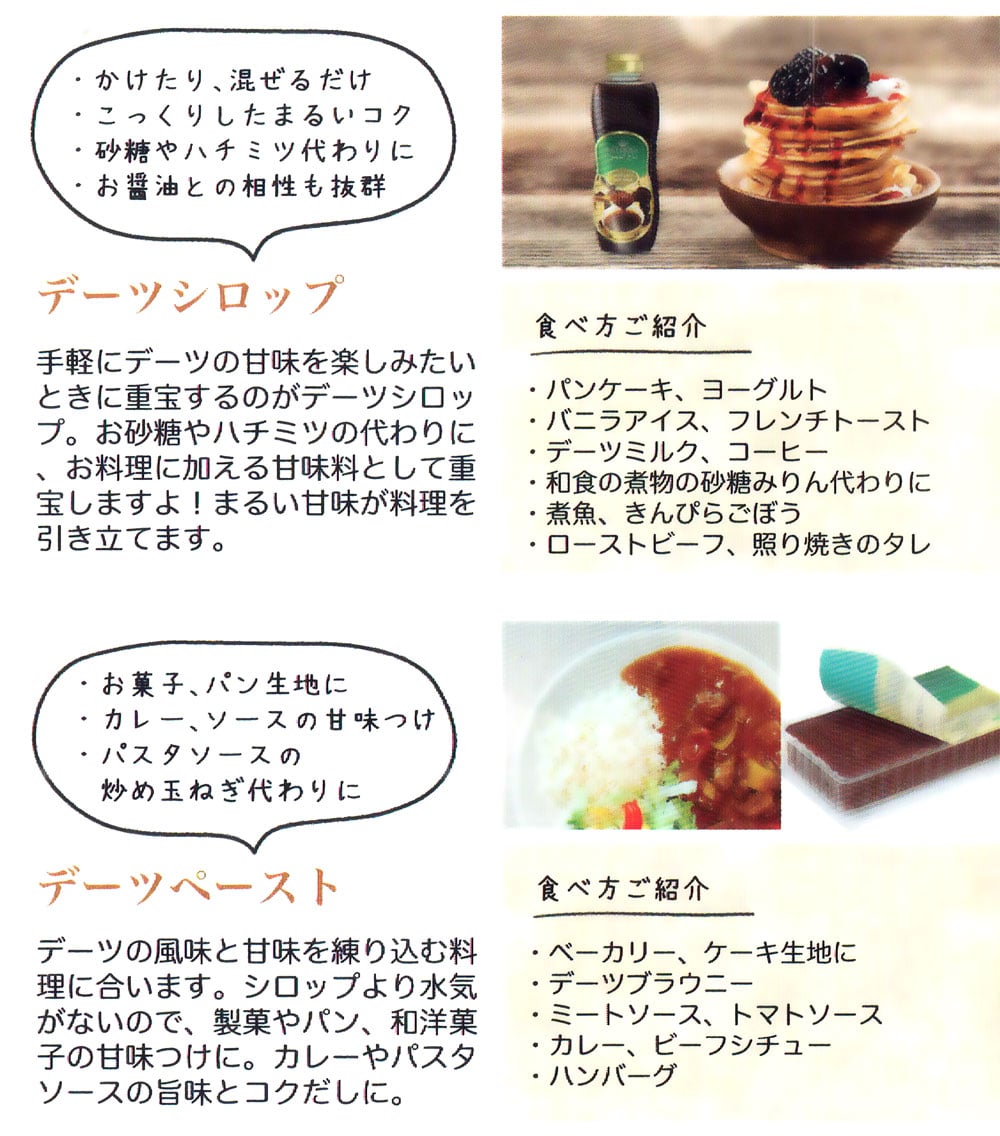 ・かけたり、混ぜるだけ
・こっくりしたまるいコク
・砂糖やハチミツ代わりに
・お醤油との相性も抜群
デーツシロップ
手軽にデーツの甘味を楽しみたい
ときに重宝するのがデーツシロッ
プ。お砂糖やハチミツの代わりに
、お料理に加える甘味料として重
宝しますよ！まるい甘味が料理を
引き立てます。
食べ方ご紹介
・パンケーキ、ヨーグルト
・バニラアイス、フレンチトースト
・デーツミルク、コーヒー
・和食の煮物の砂糖みりん代わりに
・煮魚、きんぴらごぼう
・ローストビーフ、照り焼きのタレ
・お菓子、パン生地に
・カレー、ソースの甘味つけ
・パスタソースの
炒め玉ねぎ代わりに
デーツペースト
デーツの風味と甘味を練り込む料
理に合います。シロップより水気
がないので、製菓やパン、和洋菓
子の甘味つけに。カレーやパスタ
ソースの旨味とコクだしに。
食べ方ご紹介
・ベーカリー、ケーキ生地に
・デーツブラウニー
・ミートソース、トマトソース
・カレー、ビーフシチュー
・ハンバーグ